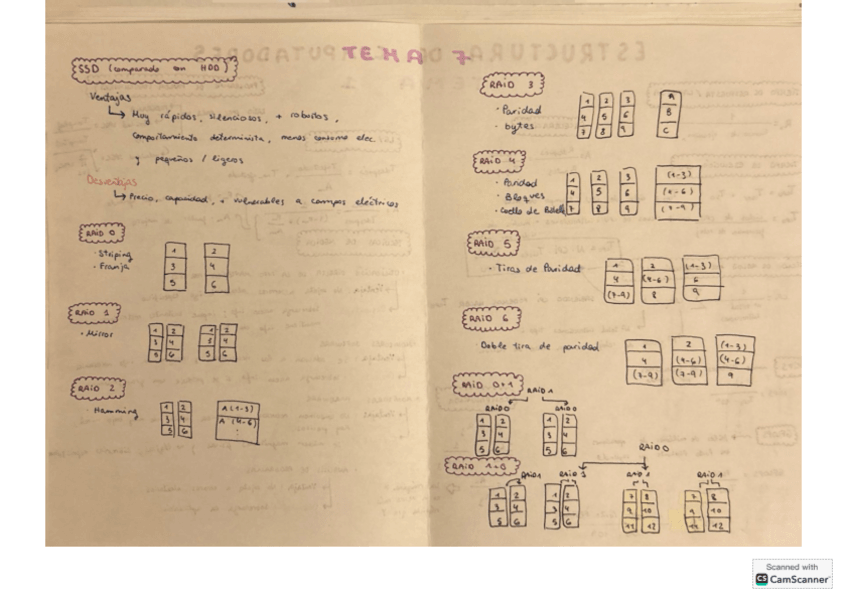 TEMA 7
SSD (comparado con HDD)
Ventajas
↳ Muy rápidos, silenciosos, + robustos,
comportamiento determinista, menos consumo elec.
y pequeños / ligeros
Desventajas
↳ Precio, capacidad, + vulnerables a campos eléctricos
RAID 0
· Striping
· Franja
1 2
3 4
5 6
RAID 1
· Mirror
1 2 1 2
3 4 3 4
5 6 5 6
RAID 2
· Hamming
1 2 A (1-3)
3 4 A (4-6)
5 6 :
RAID 3
· Paridad
· bytes
1 2 3 A
4 5 6 B
7 8 9 C
RAID 4
· Paridad
· Bloques
· Cuello de Botella
1 2 3 (1-3)
4 5 6 (4-6)
7 8 9 (7-9)
RAID 5
· Tiras de Paridad
1 2 (1-3)
4 (4-6) 6
(7-9) 8 9
RAID 6
Doble tira de paridad
1 2 (1-3)
4 (4-6) (4-6)
(7-9) (7-9) 9
RAID 0+1
RAID 1
RAID 0 RAID 0
1 2 1 2
3 4 3 4
5 6 5 6
RAID 1+0
RAID 0
RAID 1 RAID 1 RAID 1 RAID 1
1 2 1 2 7 8 7 8
3 4 3 4 9 10 9 10
5 6 5 6 11 12 11 12
Scanned with
CS CamScanner